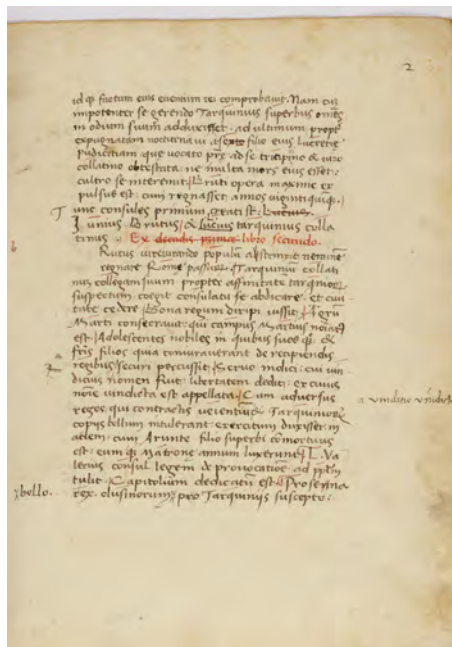 2
id q̃ factum eius euentum rei comprobauit. Nam cũ
impotenter se gerendo Tarquinius superbus om̃es
in odium suum adduxisset: ad ultimum propt̃
expugnatam nocturna ui a sexto filio eius lucretie
pudicitiam que uocato pr̃e ad se tricipitino & uiro
collatino obtestata: ne inulta mors eius esset:
cultro se interemit. Bruti opera maxime ex
pulsus est: cum regnasset annos uigintiquinq̃.
Tunc consules primum creati st̃. Lucius
Iunius Brutus / & Lucius tarquinius colla
tinus. Ex decadis prime libro secundo.
b
Rutus iureiurando populũ abstrinxit neminẽ
regnare Rome passuꝝ. Tarquiniũ collati
num collegam suum propter affinitatẽ tarquinioꝝ
suspectum coegit consulatu se abdicare et ciui
tate cedere. Bona regum diripi iussit. Agrũ
Marti consecrauit: qui campus Martius noiatꝰ
est. Adolescentes nobiles in quibus suos q̃: &
fr̃is filios quia coniurauerant de recipiendis
regibus / securi percussit. Seruo indici: cui uin
dicius nomen fuit: libertatem dedit: ex cuius
noĩe uindicta est appellata. Cum aduersus
a vinditio vindict
reges: qui contractis ueientiuꝫ & Tarquinioꝝ
copijs bellum intulerant: exercitum duxisset: in
aciem: cum Arunte filio superbi commortuus
est: eum q̃: Matrone annum luxerunt. L. Va
lerius consul legem de prouocatiõe ad pp̃lm
tulit. Capitolium dedicatũ est. Prosenna
bello.
rex. clusinorum pro Tarquinijs suscepto: